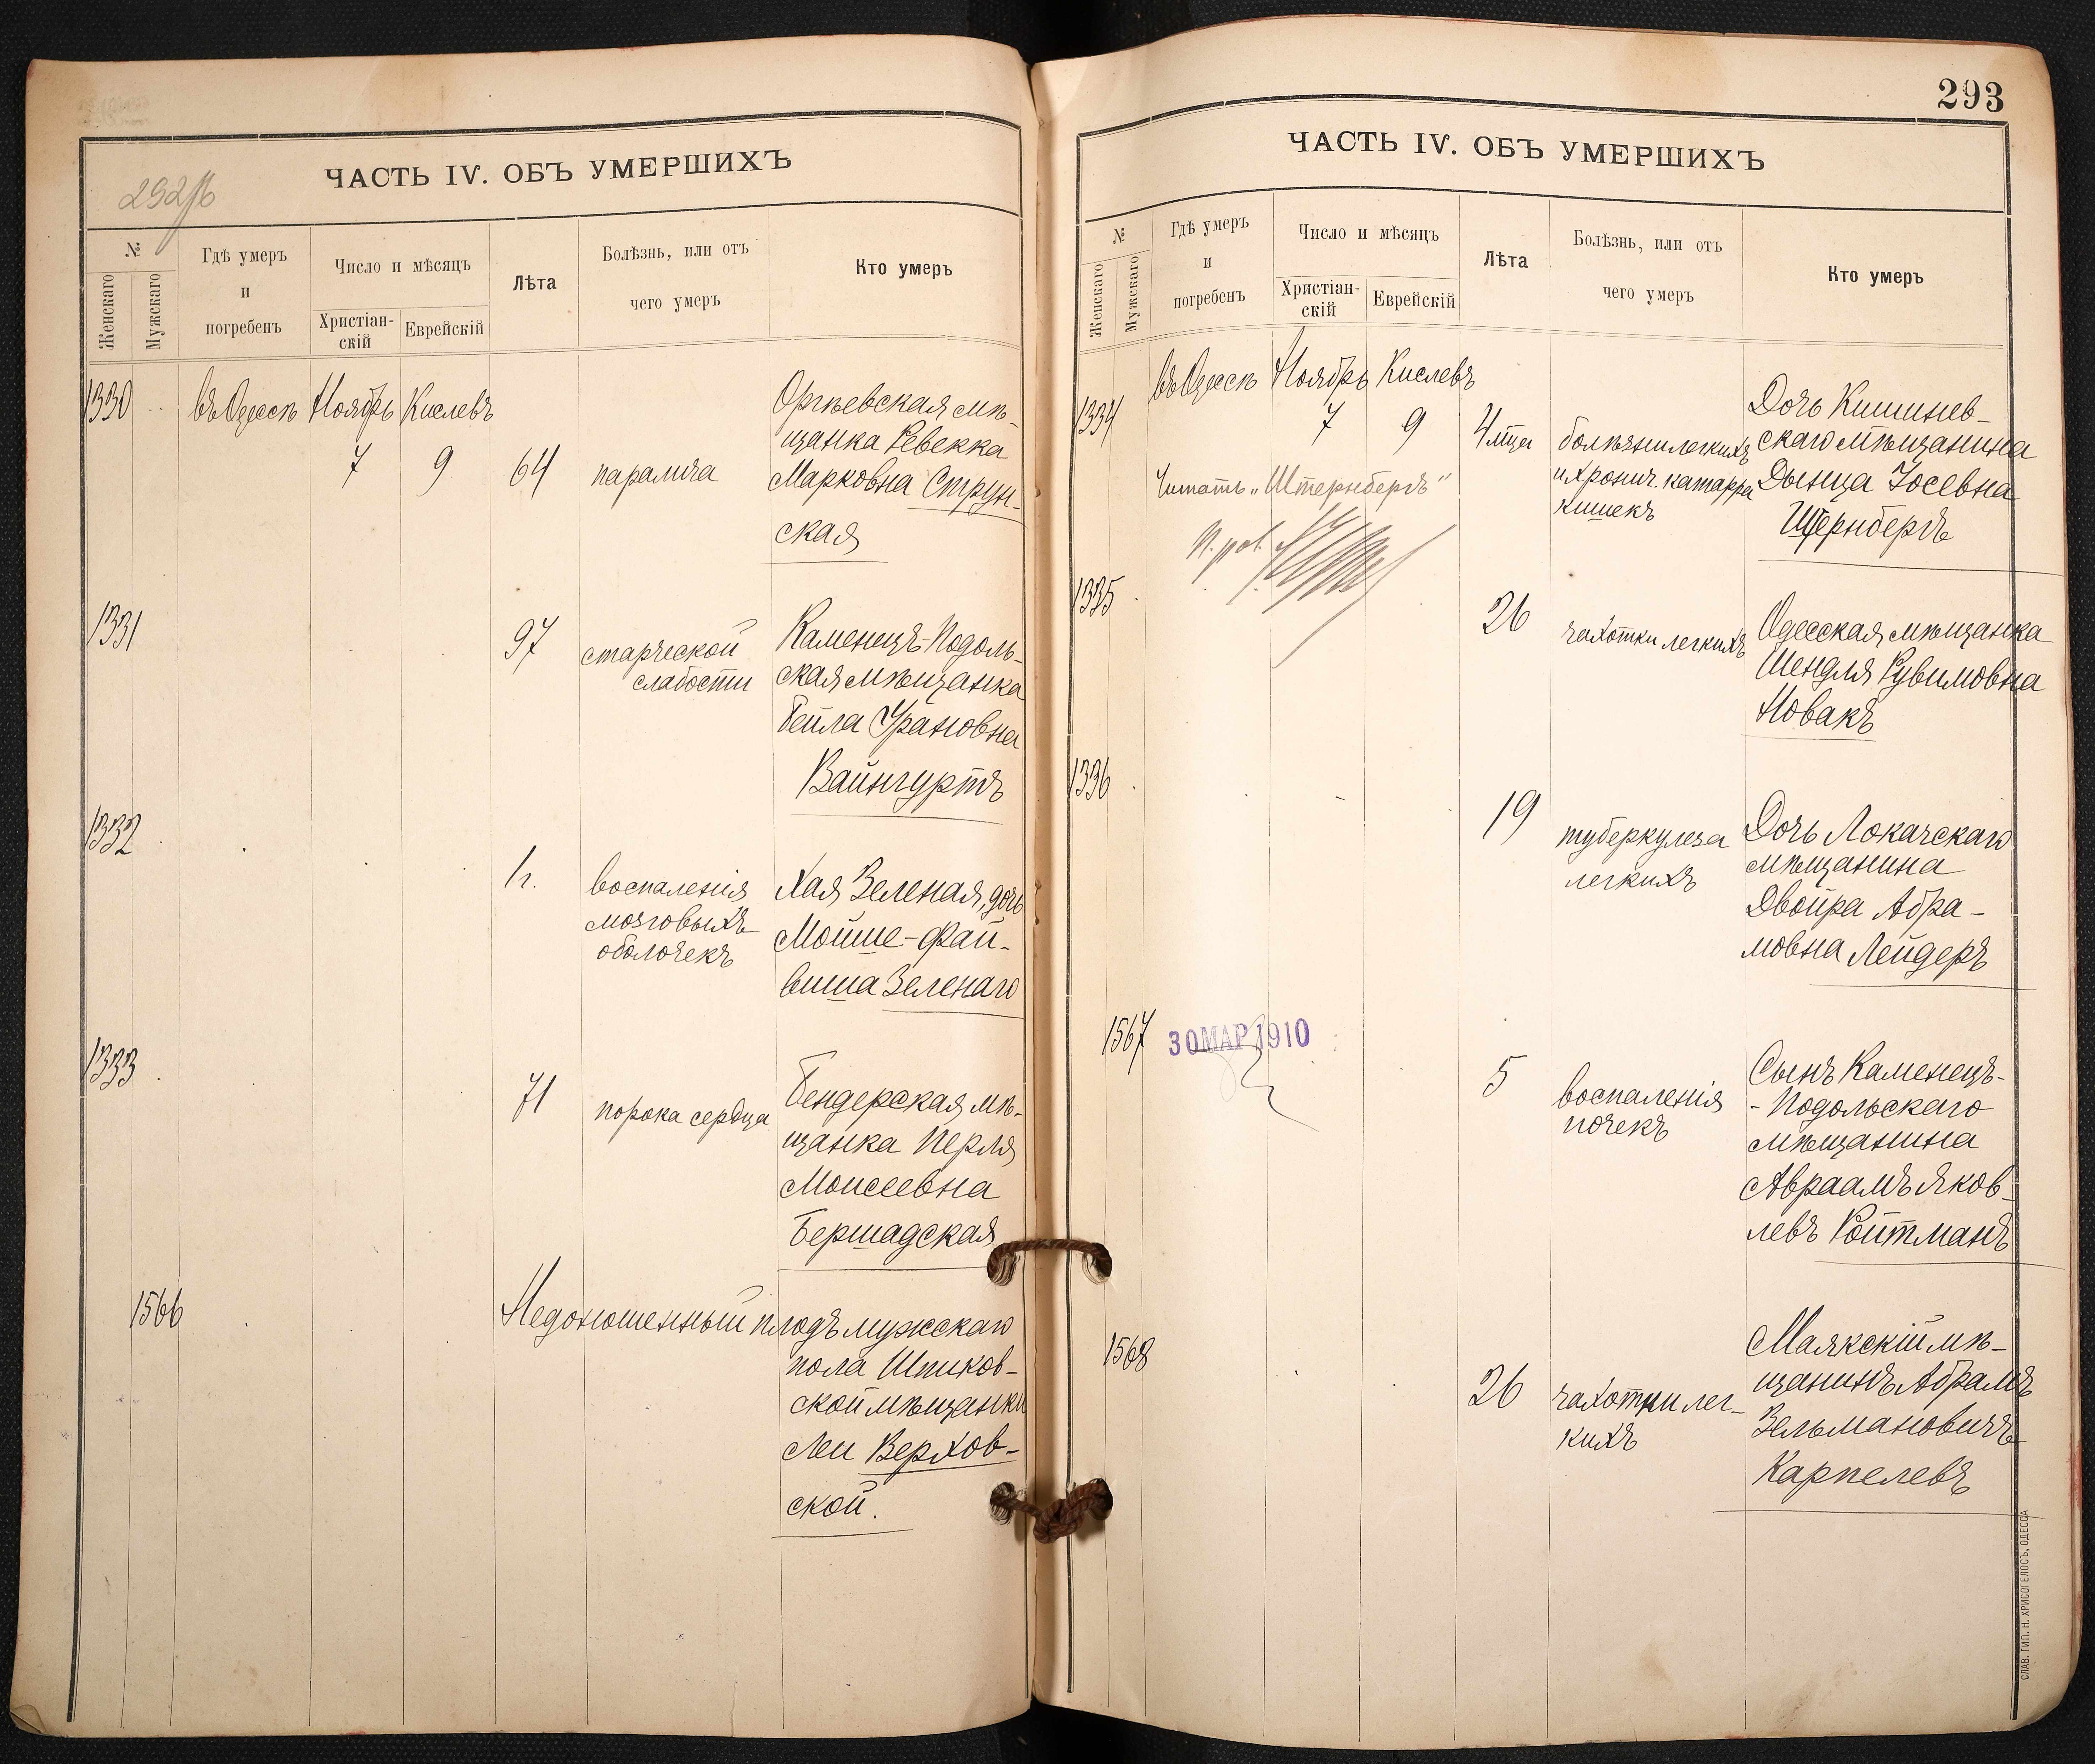 292 об
ЧАСТЬ IV. ОБЪ УМЕРШИХЪ
№
Женскаго
Мужскаго
Гдѣ умеръ
и
погребенъ
Число и мѣсяцъ
Христіан-
скій
Еврейскій
Лѣта
Болѣзнь, или отъ
чего умеръ
Кто умеръ
1330
въ Одессѣ
Ноябрь
Кислевъ
7
9
64
паралича
Оргѣевская мѣ-
щанка Ревекка
Марковна Струн-
ская
1331
97
старческой
слабости
Каменецъ-Подоль-
ская мѣщанка
Бейла Урановна
Вайнгуртъ
1332
1 г.
воспаленія
мозговыхъ
оболочекъ
Хая Зеленая, дочь
Мойше-Фай-
виша Зеленаго
1333
71
порока сердца
Бендерская мѣ-
щанка Перля
Моисеевна
Бершадская
1566
Недоношенный плодъ мужскаго
пола Шпиков-
ской мѣщанки
Леи Верхов-
ской.
293
ЧАСТЬ IV. ОБЪ УМЕРШИХЪ
№
Женскаго
Мужскаго
Гдѣ умеръ
и
погребенъ
Число и мѣсяцъ
Христіан-
скій
Еврейскій
Лѣта
Болѣзнь, или отъ
чего умеръ
Кто умеръ
1334
въ Одессѣ
Ноябрь
Кислевъ
7
9
4 мѣца
болѣзни легкихъ
и хронич. катарра
кишекъ
Дочь Кишинев-
скаго мѣщанина
Дынца Іосевна
Щернбергъ
Читать „Штернбергъ"
1335
26
чахотки легкихъ
Одесская мѣщанка
Шендля Рувимовна
Новакъ
1336
19
туберкулеза
легкихъ
Дочь Локачскаго
мѣщанина
Двойра Абра-
мовна Лейдеръ
1567
30 МАР 1910
5
воспаленія
почекъ
Сынъ Каменецъ-
-Подольскаго
мѣщанина
Авраамъ Яков-
левъ Ройтманъ
1568
26
чахотки лег-
кихъ
Маякскій мѣ-
щанинъ Абрамъ
Зельмановичъ
Карпелевъ
СЛАВ. ТИП. Н. ХРИСОГЕЛОСЪ, ОДЕССА